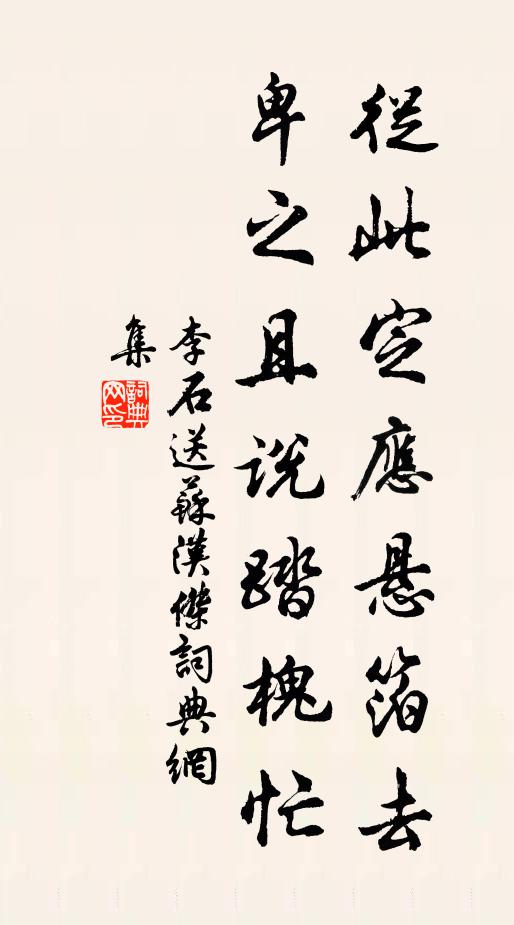 從此定應悬箔去
卑之且说踏槐忙
李石送蘇漢傑詞典網
集
詞典
网印